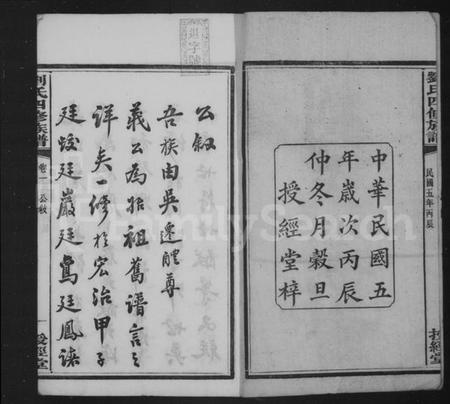 劉氏四修族譜
民國五年丙辰
授經堂
中華民國五
年歲次丙辰
仲冬月穀旦
授經堂梓
公敘
吾族由吳遷醴尊
義公為始祖舊譜言之
詳矣一修於宏治甲子
廷蛟廷巖廷鸞廷鳳諸
劉氏四修族譜
卷一 公敘
一
授經堂
FamilySearch